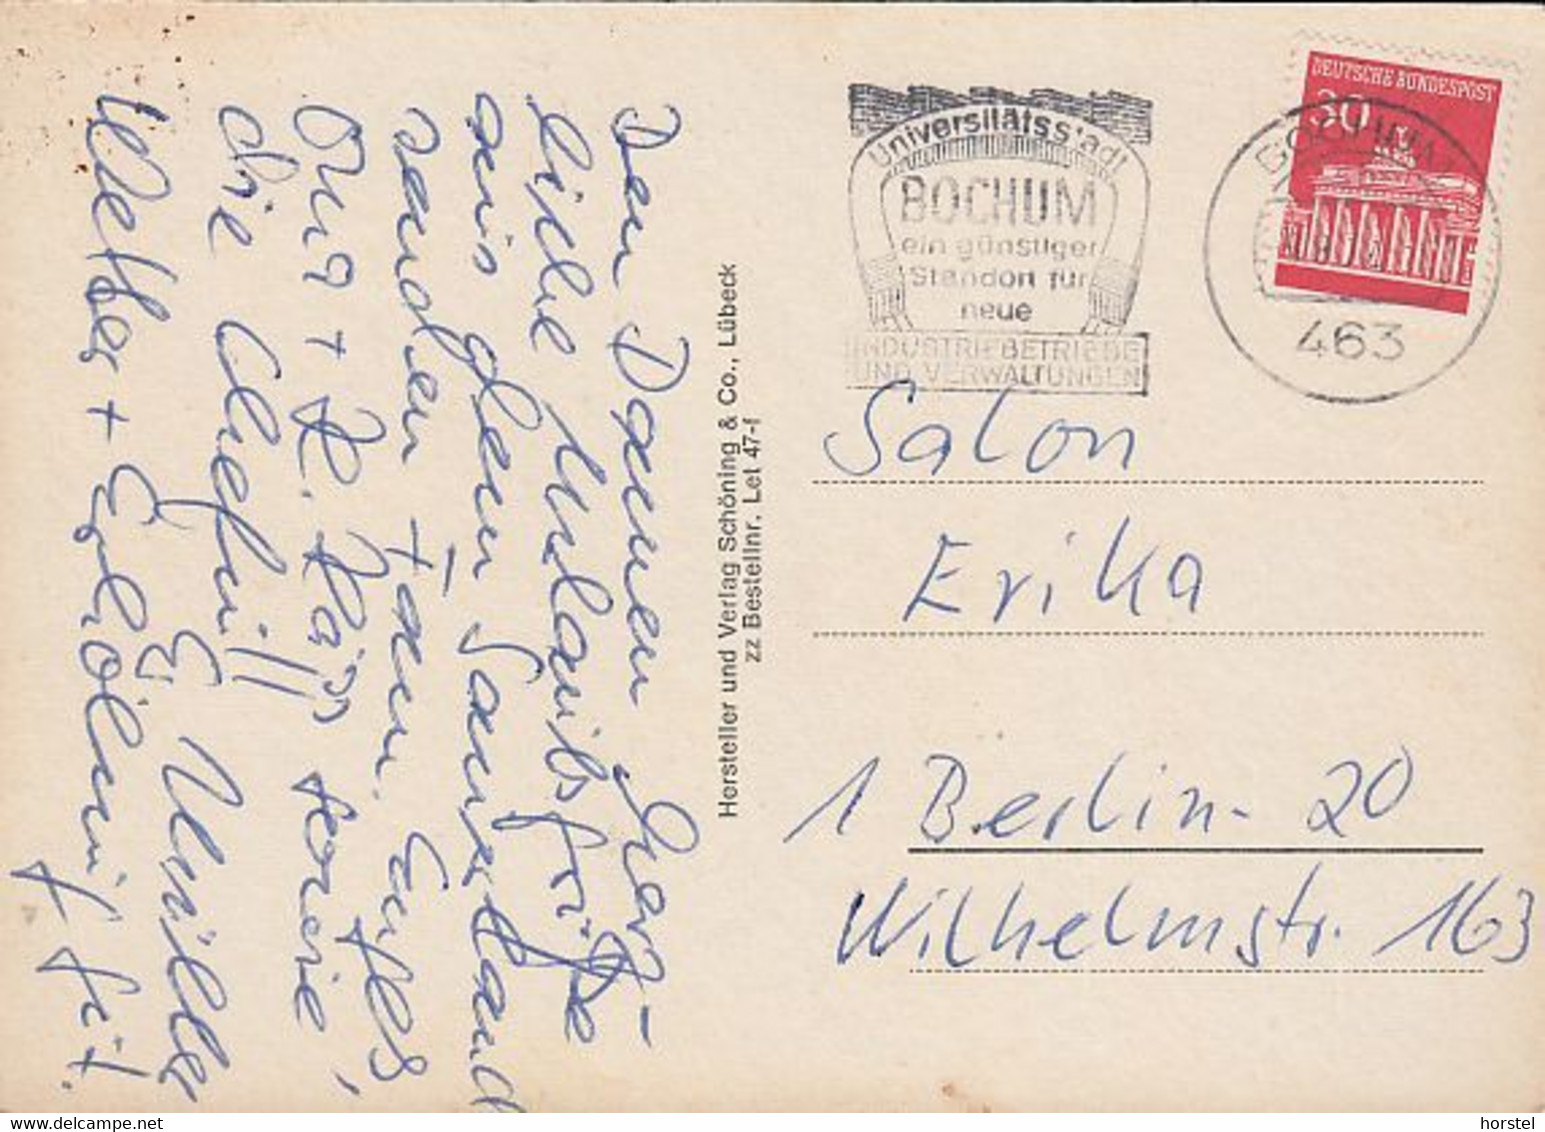 Den Damen herz-
liche Urlaubsgrüße
aus dem Sauerland
senden Fam. Engles,
Omi + H. sowie
die Chefin!!
Wetter + Erholung gut.
Hersteller und Verlag Schöning & Co., Lübeck
zz Bestellnr. Let 47-f
Universitätsstadt
BOCHUM
ein günstiger
Standort für
neue
INDUSTRIEBETRIEBE
UND VERWALTUNGEN
DEUTSCHE BUNDESPOST
30
BOCHUM
463
Salon
Erika
1 Berlin-20
Wilhelmstr. 163
horstel